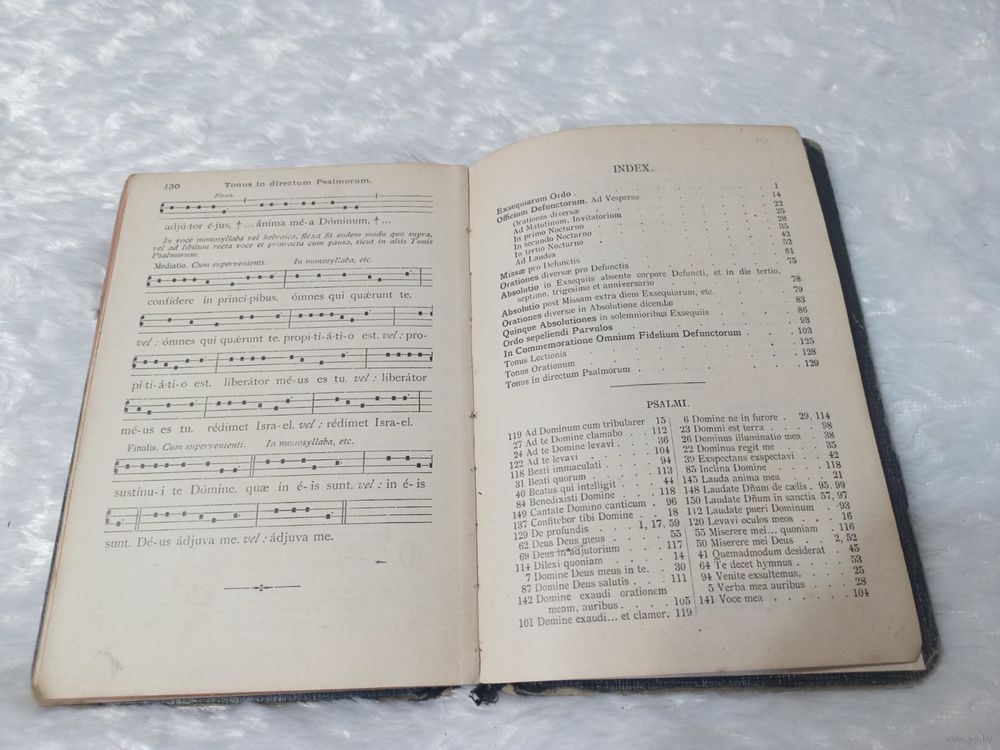 130 Tonus in directum Psalmorum.
Flexa.
adjú-tor é-jus, † ... ánima mé-a Dóminum, † ...
In voce monosyllaba vel hebraica, flexa fit eodem modo quo supra,
vel ad libitum recta voce et protracta cum pausa, sicut in aliis Tonis
Psalmorum.
Mediatio. Cum supervenienti. In monosyllaba, etc.
confídere in princí-pibus. ómnes qui quǽrunt te.
vel : ómnes qui quǽrunt te. propi-ti-á-ti-o est. vel : pro-
pi-ti-á-ti-o est. liberátor mé-us es tu. vel : liberátor
mé-us es tu. rédimet Isra-el. vel : rédimet Isra-el.
Finalis. Cum supervenienti. In monosyllaba, etc.
sustínu-i te Dómine. quæ in é-is sunt. vel : in é-is
sunt. Dé-us ádjuva me. vel : ádjuva me.
INDEX.
Exsequiarum Ordo 1
Officium Defunctorum. Ad Vesperas 14
Orationes diversæ 22
Ad Matutinum. Invitatorium 25
In primo Nocturno 28
In secundo Nocturno 35
In tertio Nocturno 42
Ad Laudes 52
Missæ pro Defunctis 61
Orationes diversæ pro Defunctis 75
Absolutio in Exsequiis absente corpore Defuncti, et in die tertio,
septimo, trigesimo et anniversario 78
Absolutio post Missam extra diem Exsequiarum, etc. 79
Orationes diversæ in Absolutione dicendæ 83
Quinque Absolutiones in solemnioribus Exsequiis 86
Ordo sepeliendi Parvulos 93
In Commemoratione Omnium Fidelium Defunctorum 103
Tonus Lectionis 125
Tonus Orationum 128
Tonus in directum Psalmorum 129
PSALMI.
119 Ad Dominum cum tribularer 15
27 Ad te Domine clamabo 112
24 Ad te Domine levavi 36
122 Ad te levavi 104
118 Beati immaculati 94
31 Beati quorum 113
40 Beatus qui intelligit 44
84 Benedixisti Domine 118
149 Cantate Domino canticum 96
137 Confitebor tibi Domine 18
129 De profundis 1, 17, 59
62 Deus Deus meus 55
69 Deus in adjutorium 117
114 Dilexi quoniam 14
7 Domine Deus meus in te. 30
87 Domine Deus salutis 111
142 Domine exaudi orationem
meam, auribus 105
101 Domine exaudi... et clamor. 119
6 Domine ne in furore 29, 114
23 Domini est terra 98
26 Dominus illuminatio mea 38
22 Dominus regit me 35
39 Exspectans exspectavi 42
85 Inclina Domine 118
145 Lauda anima mea 21
148 Laudate Dñum de cælis 95, 99
150 Laudate Dñum in sanctis 57, 97
112 Laudate pueri Dominum 93
120 Levavi oculos meos 16
55 Miserere mei... quoniam 116
50 Miserere mei Deus 2, 52
41 Quemadmodum desiderat 45
64 Te decet hymnus 53
94 Venite exsultemus. 25
5 Verba mea auribus 28
141 Voce mea 104
www.ay.by